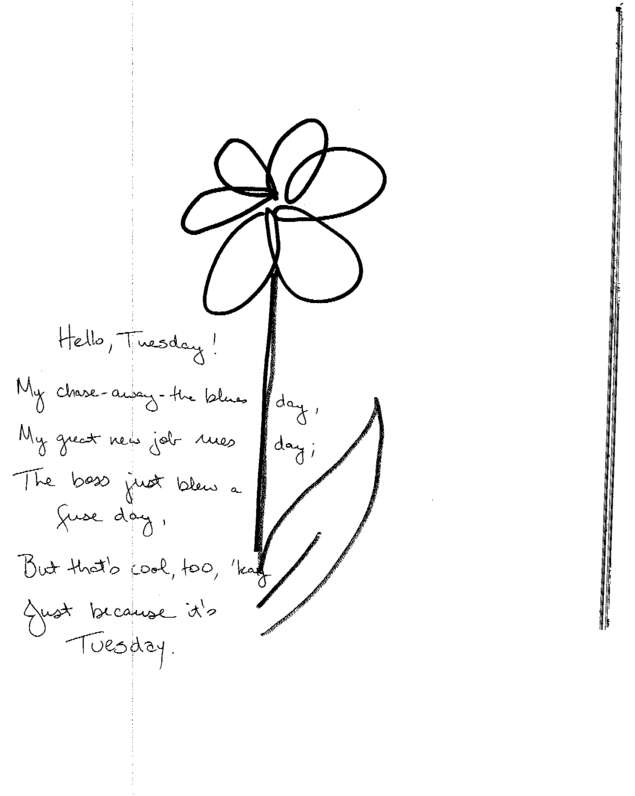 Hello, Tuesday!
My chase-away-the blues day,
My great new job day;
The boss just blew a
fuse day,
But that's cool, too, 'kay
Just because it's
Tuesday.